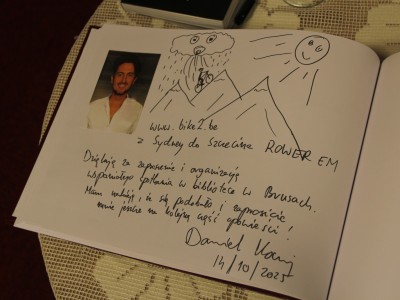 www.bike2.be
z Sydney do Szczecina ROWEREM
Dziękuję za zaproszenie i organizację
wspaniałego spotkania w bibliotece w Brusach.
Mam nadzieję, że się podobało i zaprosicie
mnie jeszcze na kolejną część opowieści!
Daniel
14/10/2025